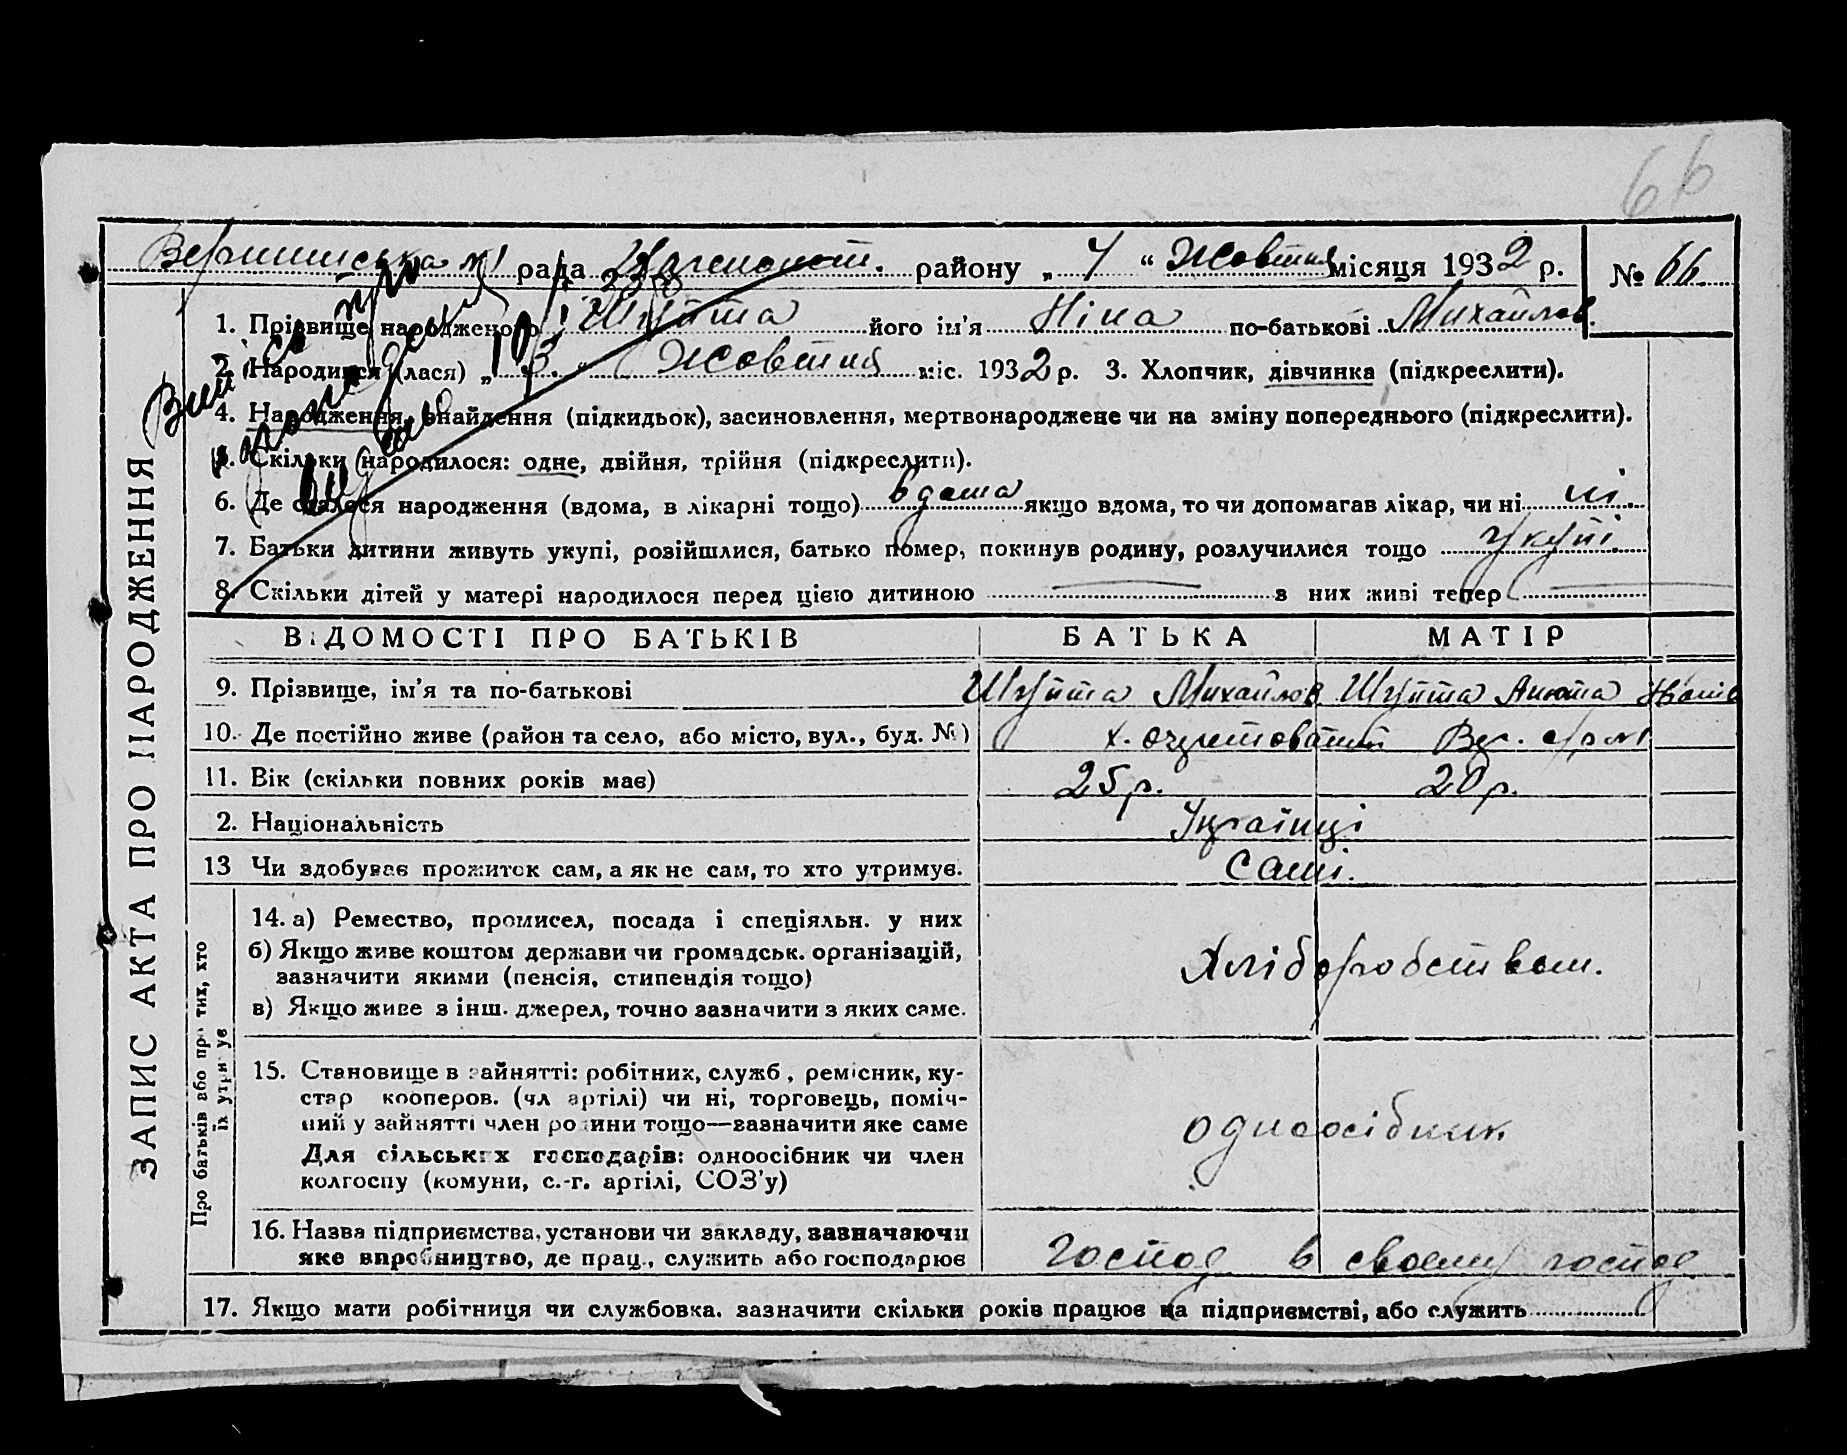 66
рада району „ 4 “ Жовтня місяця 1932 р. № 66
1. Прізвище народженого його ім'я Ніна по-батькові Михайлов.
2. Народився (лася) „ 3. “ Жовтня міс. 1932 р. 3. Хлопчик, дівчинка (підкреслити).
4. Народження, знайдення (підкидьок), засиновлення, мертвонароджене чи на зміну попереднього (підкреслити).
5. Скільки народилося: одне, двійня, трійня (підкреслити).
6. Де сталося народження (вдома, в лікарні тощо) вдома якщо вдома, то чи допомагав лікар, чи ні ні
7. Батьки дитини живуть укупі, розійшлися, батько помер, покинув родину, розлучилися тощо укупі
8. Скільки дітей у матері народилося перед цією дитиною — в них живі тепер —
ЗАПИС АКТА ПРО НАРОДЖЕННЯ
ВІДОМОСТІ ПРО БАТЬКІВ БАТЬКА МАТІР
9. Прізвище, ім'я та по-батькові Михайлов Анюта
10. Де постійно живе (район та село, або місто, вул., буд. №)
11. Вік (скільки повних років має) 25 р. 20 р.
2. Національність Українці
13 Чи здобуває прожиток сам, а як не сам, то хто утримує. Самі.
Про батьків або про тих, хто їх утримує
14. а) Ремество, промисел, посада і спеціяльн. у них
б) Якщо живе коштом держави чи громадськ. організацій,
зазначити якими (пенсія, стипендія тощо) Хліборобством.
в) Якщо живе з інш. джерел, точно зазначити з яких саме.
15. Становище в зайнятті: робітник, служб., ремісник, ку-
стар кооперов. (чл артілі) чи ні, торговець, поміч-
ний у зайнятті член родини тощо—зазначити яке саме одноосібник
Для сільських господарів: одноосібник чи член
колгоспу (комуни, с.-г. артілі, СОЗ'у)
16. Назва підприємства, установи чи закладу, зазначаючи
яке виробництво, де прац., служить або господарює Господ в своему господ
17. Якщо мати робітниця чи службовка. зазначити скільки років працює на підприємстві, або служить